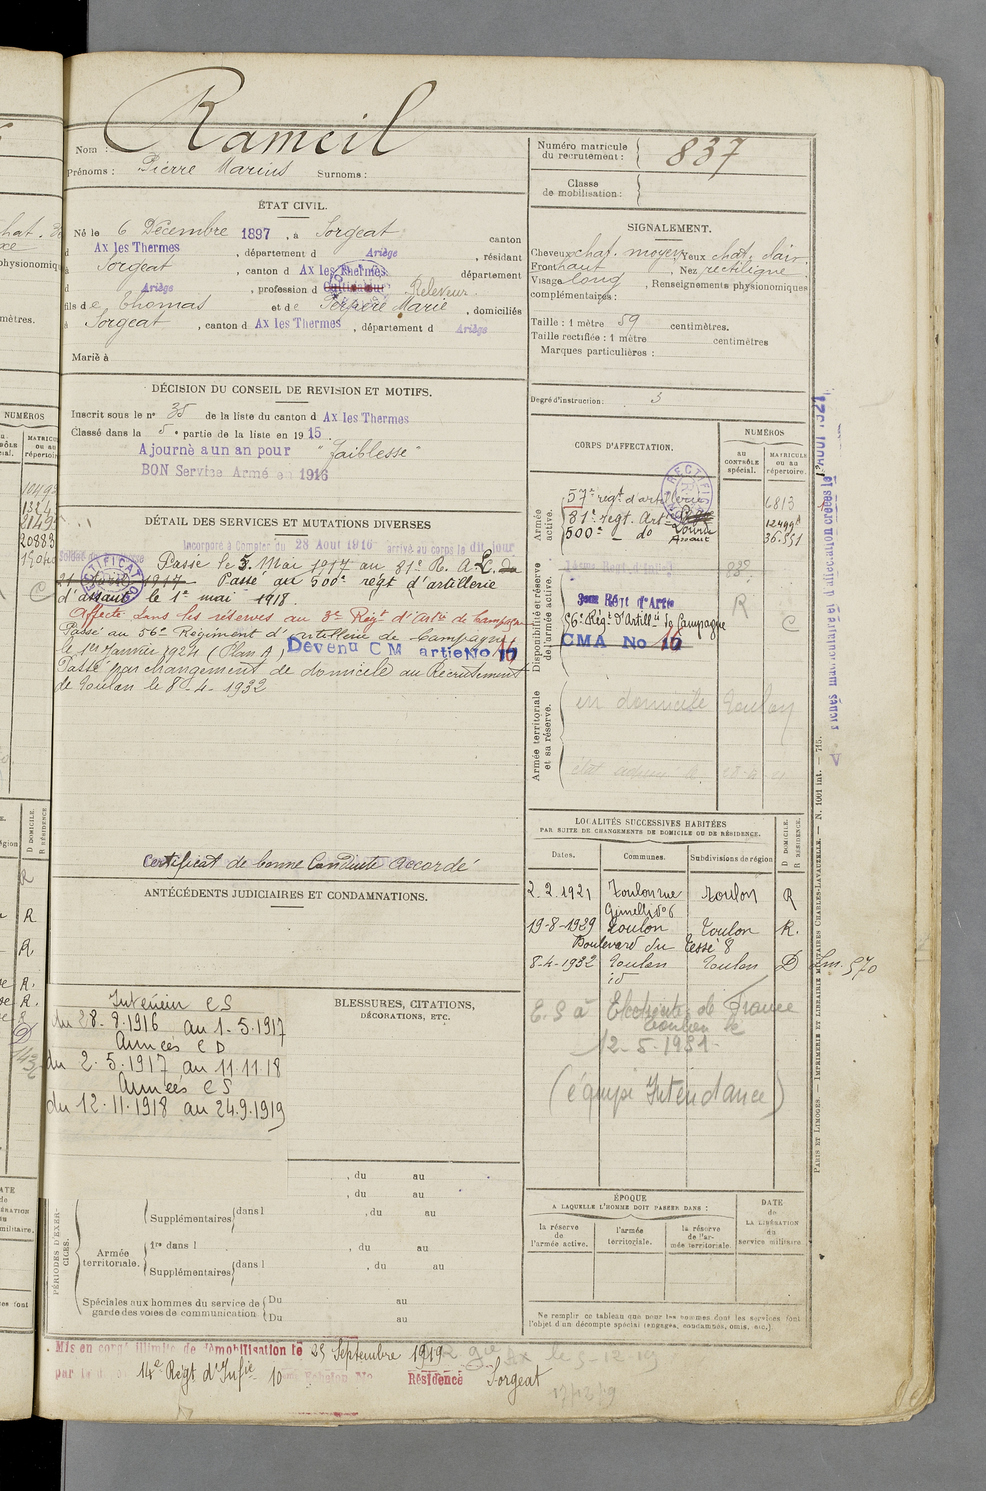 Nom : Rameil
Prénoms : Pierre Marius Surnoms :
ÉTAT CIVIL.
Né le 6 Décembre 1897, à Sorgeat canton
d Ax les Thermes, département d Ariège, résidant
à Sorgeat, canton d Ax les Thermes département
d Ariège, profession d Cultivateur Releveur
fils de Thomas et de Marie, domiciliés
à Sorgeat, canton d Ax les Thermes, département d Ariège
Marié à
DÉCISION DU CONSEIL DE REVISION ET MOTIFS.
Inscrit sous le n° 35 de la liste du canton d Ax les Thermes
Classé dans la 5e partie de la liste en 1915
Ajourné a un an pour "faiblesse"
BON Service Armé en 1916
DÉTAIL DES SERVICES ET MUTATIONS DIVERSES
Incorporé à Compter du 28 Aout 1916 arrivé au corps le dit jour
Passé le 3 Mai 1917 au 81e R. A. L. du
1917 Passé au 500e regt d'artillerie
d'assaut le 1er mai 1918.
Affecté dans les réserves au 3e Regt d'Artie de Campagne
Passé au 56e Régiment d'artillerie de Campagne
le 1er Janvier 1924 (Plan A) Devenu CM artie No 16
Passé par changement de domicile au Recrutement
de Toulon le 8-4-1932
Certificat de bonne Conduite Accordé
ANTÉCÉDENTS JUDICIAIRES ET CONDAMNATIONS.
Intérieur CS
du 28-8.1916 au 1-5.1917
Armées CD
du 2.5.1917 au 11.11.18
Armées CS
du 12.11.1918 au 24.9.1919
BLESSURES, CITATIONS,
DÉCORATIONS, ETC.
, du au
, du au
PÉRIODES D'EXERCICES.
Supplémentaires dans l , du au
Armée territoriale.
1re dans l , du au
Supplémentaires dans l , du au
Spéciales aux hommes du service de Du au
garde des voies de communication Du au
Mis en congé illimité de démobilisation le 25 Septembre 1919
par le 14e Régt d'Infie 10 Echelon No Résidence Sorgeat
Numéro matricule
du recrutement : 837
Classe
de mobilisation :
SIGNALEMENT.
Cheveux chat. moyen Yeux chat. clair
Front haut, Nez rectiligne
Visage long, Renseignements physionomiques
complémentaires :
Taille : 1 mètre 59 centimètres.
Taille rectifiée : 1 mètre centimètres
Marques particulières :
Degré d'instruction : 3
CORPS D'AFFECTATION.
NUMÉROS
au CONTRÔLE spécial.
MATRICULE ou au répertoire.
Armée active.
57e regt d'artillerie 6813
81e regt. Art Lourde 12499
500e - do Assaut 36.551
RECTIFICATION
Disponibilité et réserve de l'armée active.
3eme Régt d'Artie R
56e Régt d'Artillie de Campagne C
CMA No 16
Armée territoriale et sa réserve.
un domicile Toulon
LOCALITÉS SUCCESSIVES HABITÉES
PAR SUITE DE CHANGEMENTS DE DOMICILE OU DE RÉSIDENCE.
Dates. Communes. Subdivisions de région D DOMICILE. R RÉSIDENCE
2.2.1921 Toulon rue Toulon R
Gimelli No 6
19-8-1929 Toulon Toulon R.
Boulevard du Tessé 8
8-4-1932 Toulon Toulon D
id
E.S à Electricité de France
Toulon le
12-5-1951
(équipe Intendance)
ÉPOQUE
A LAQUELLE L'HOMME DOIT PASSER DANS :
la réserve de l'armée active.
l'armée territoriale.
la réserve de l'armée territoriale.
DATE de LA LIBÉRATION du service militaire
Ne remplir ce tableau que pour les hommes dont les services font
l'objet d'un décompte spécial (engagés, condamnés, omis, etc.)
PARIS ET LIMOGES. — IMPRIMERIE ET LIBRAIRIE MILITAIRES CHARLES-LAVAUZELLE. — N. 1001 int. — 715.